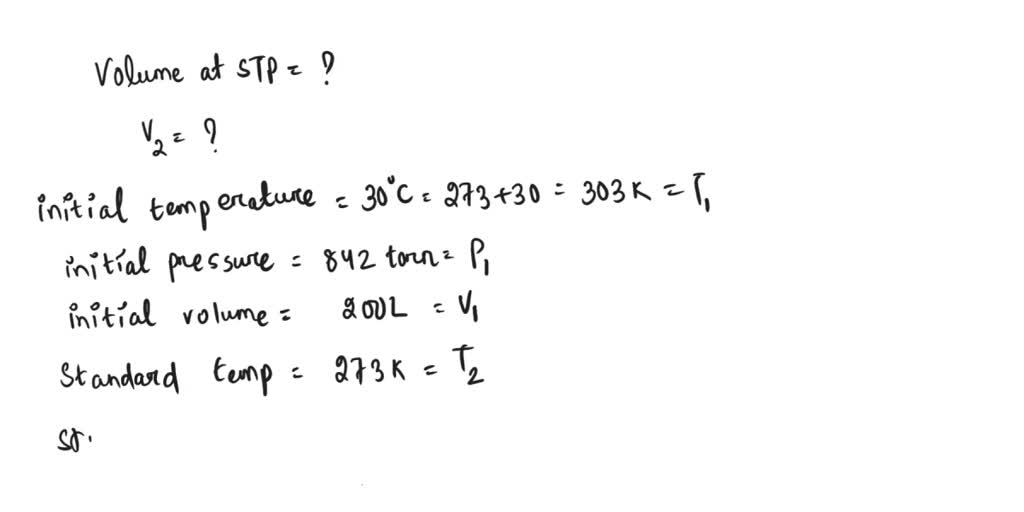 Volume at STP = ?
V₂ = ?
initial temperature = 30°C = 273+30 = 303K = T₁
initial pressure = 842 torr = P₁
initial volume = 200L = V₁
Standard temp = 273K = T₂
st